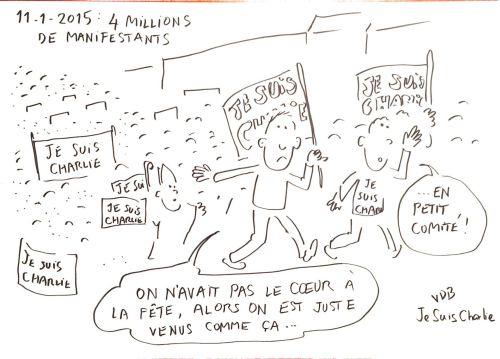 11-1-2015: 4 MILLIONS
DE MANIFESTANTS
JE SUIS
CHARLIE
JE SUIS
JE SUIS
CHARLIE
JE SUI
JE SUIS
CHARLIE
JE SUIS
CHARLIE
JE SUIS
CHARL
... EN
PETIT
COMITÉ!
ON N'AVAIT PAS LE CŒUR À
LA FÊTE, ALORS ON EST JUSTE
VENUS COMME ÇA...
VDB
Je Suis Charlie